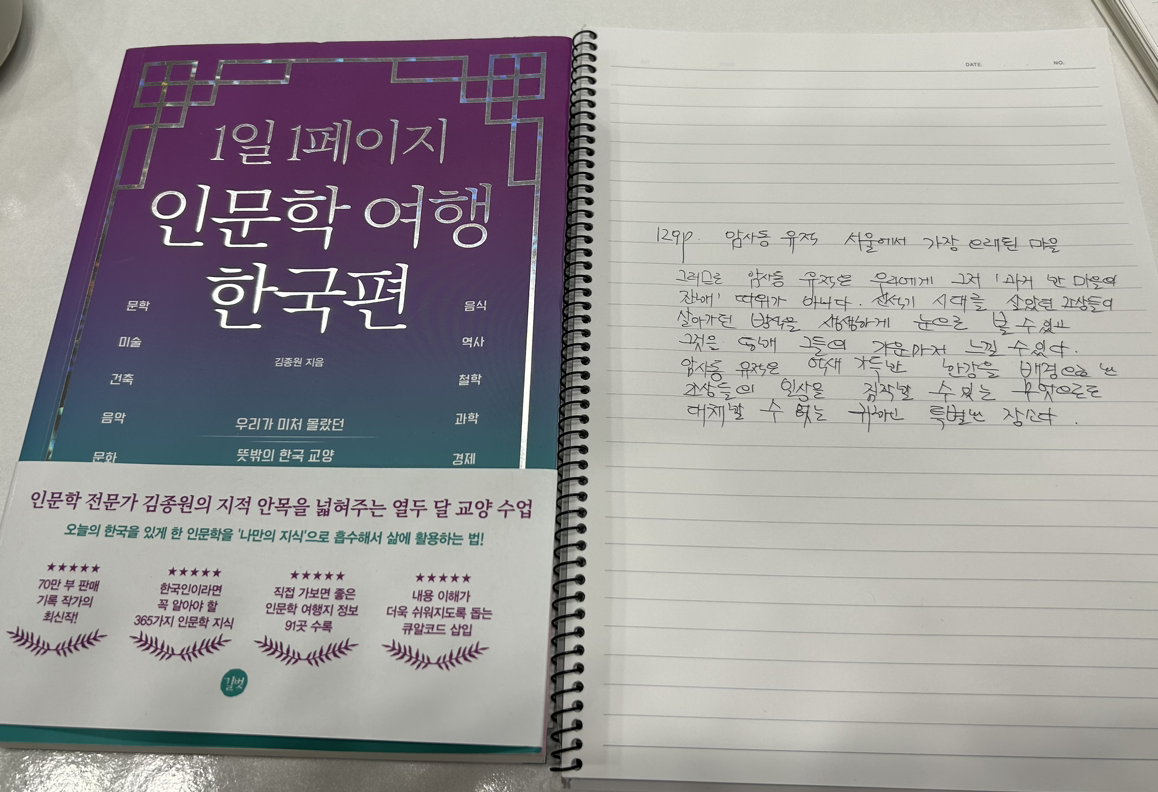 1일 1페이지
인문학 여행
한국편
문학
미술
건축
음악
문화
음식
역사
철학
과학
경제
김종원 지음
우리가 미처 몰랐던
뜻밖의 한국 교양
인문학 전문가 김종원의 지적 안목을 넓혀주는 열두 달 교양 수업
오늘의 한국을 있게 한 인문학을 '나만의 지식'으로 흡수해서 삶에 활용하는 법!
★★★★★
70만 부 판매
기록 작가의
최신작!
★★★★★
한국인이라면
꼭 알아야 할
365가지 인문학 지식
★★★★★
직접 가보면 좋은
인문학 여행지 정보
91곳 수록
★★★★★
내용 이해가
더욱 쉬워지도록 돕는
큐알코드 삽입
길벗
DATE: NO.
129p. 암사동 유적 서울에서 가장 오래된 마을
그러므로 암사동 유적은 우리에게 그저 '과거 한 마을의
잔해' 따위가 아니다. 신석기 시대를 살았던 조상들의
살아가던 방식을 생생하게 눈으로 볼 수 있고
그것은 통해 그들의 기운마저 느낄 수 있다.
암사동 유적은 억새 가득한 한강을 배경으로 한
조상들의 일상을 짐작할 수 있는 무엇으로도
대체할 수 없는 귀하고 특별한 장소다.